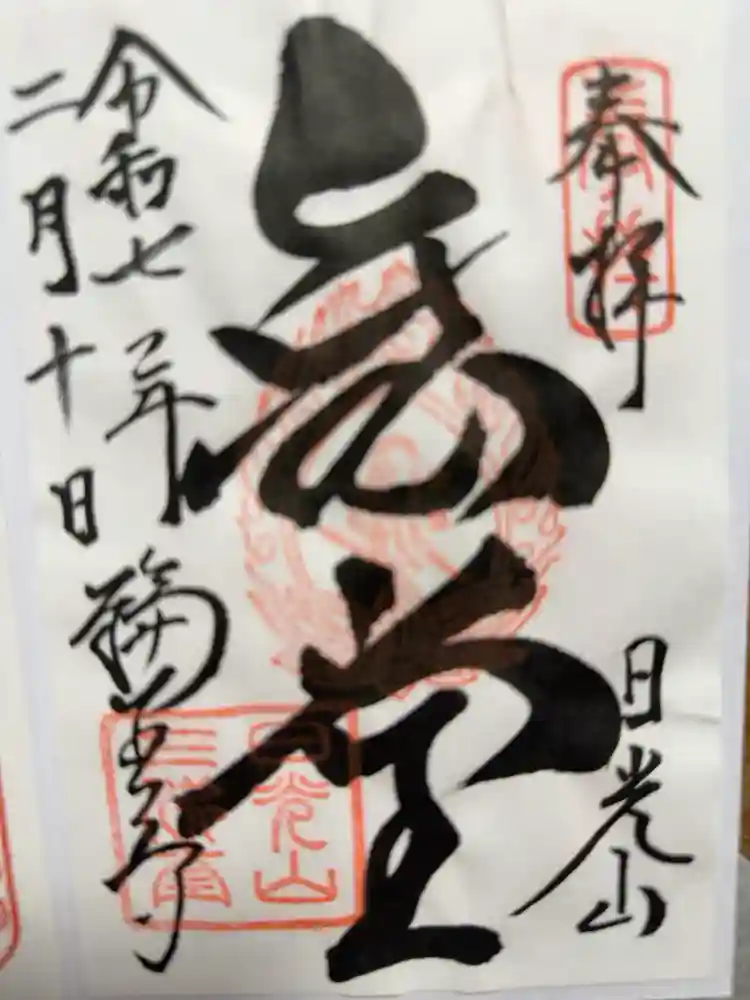 奉拝
日光山
堂
令和七年
二月十日
輪王寺
日光山